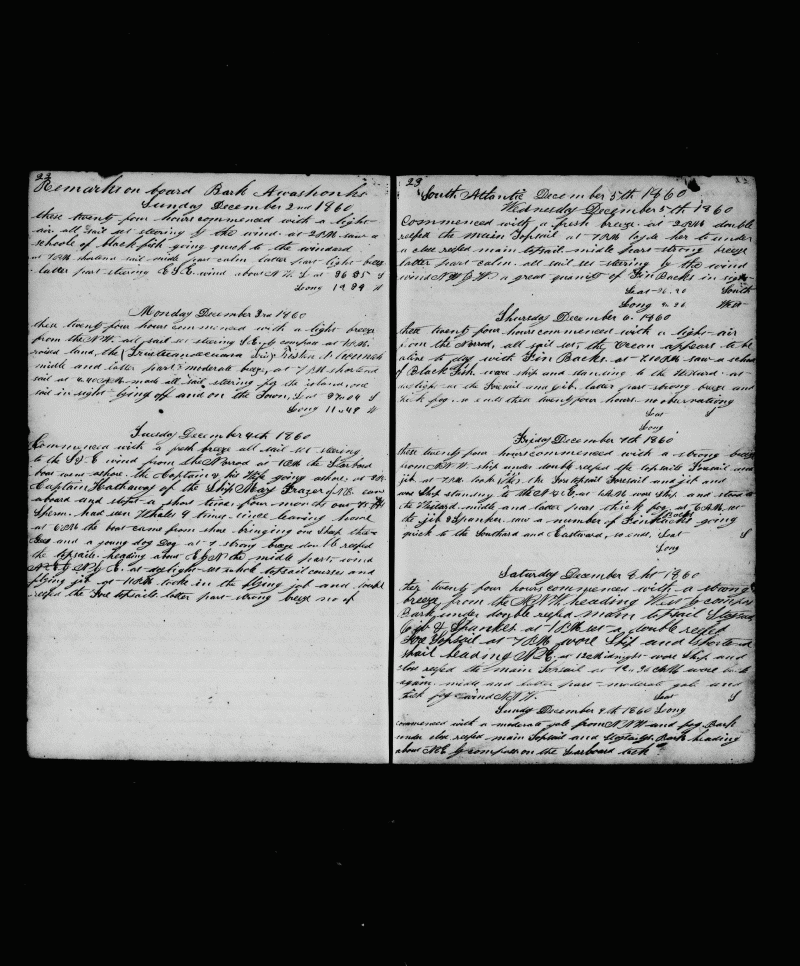 22
Remarks on board Bark Awashonks
Sunday December 2nd 1860
these twenty four hours commenced with a light
air all sail set steering by the wind at 2 PM saw a
school of blackfish going quick to the windard
at 7 PM shortend sail middle part calm latter part light breeze
latter part steering E S E wind about N
Long 12 29 W
Monday December 3rd 1860
these twenty four hours commenced with a light breeze
from the N W all sail set steering S E by compass at 10 AM
raised land, the
middle and latter part moderate breeze, at 7 PM shortend
sail at 4.40 AM made all sail, stering for the island, one
sail in sight lying off and on the Town, Lat 37 04 S
Long 11 49 W
Tuesday December 4th 1860
Commenced with a fresh breeze all sail set steering
to the S E wind from the Norrod at 10 AM the Starboard
boat went ashore, the Captain & his Wife going ashore, at
Captain Hathaway of the Ship Mary Frazer of N B came
aboard and stopt a short time, four months out
Sperm had seen Whales 9 times since leaving home
at 6 PM the boat came from shore bringing on Sheep three
Gees and a young dog Dog at 7 strong breeze double reefed
the topsails heading about E by N the middle part, wind
at daylight set whole topsail courses and
flying jib at 11 AM took in the flying jib and double
reefed the Fore topsails latter part strong breeze no
23
South Atlantic December 5th 1860
Wednesday December 5th 1860
Commenced with a fresh breeze at 2 PM double
reefed the main topsail at 7 PM luft her to under
a close reefed main topsail middle part strong breeze
latter part calm all sail set steering by the wind
wind N W by W. a great quanity of Fin Backs in sight
Lat South
Long West
Thursday December 6. 1860
these twenty four hours commenced with a light air
from the Norrod, all sail set, the Ocean appears to be
alive to day with Fin Backs at saw a school
of Black Fish wore ship and standing to the Westard at
latter part strong breeze and
thick fog so ends these twenty four hours no observations
Lat S
Long
Friday December 7th 1860
these twenty four hours commenced with a strong breeze
from ship under double reefed the topsails Foresail and
jib at 7 PM took in the Foretopsail Foresail and jib and
wore Ship standing to the N & E. at wore Ship and stood to
the Westard middle and latter part thick fog at 6 AM set
the jib & Spanker saw a number of Finbacks going
quick to the Southard and Eastward, so ends, Lat S
Long
Saturday December 8 1860
these twenty four hours commenced with a strong
breeze from the heading West by compass
Bark under double reefd main topsail Staysail
Jib & Spanker at 1 PM set a double reefed
Fore Topsail at 7 PM wore Ship and shortend
sail heading N E. at 12 midnight wore Ship and
close reefed the main Topsail at wore back
again middle and latter part moderate gale and
thick fog wind N N W. Lat S
Sunday December 9th 1860 Long
commenced with a moderate gale from N N W and fog Bark
under close reefed main Topsail and staysails Bark heading
about N E by compass on the Larboard tack